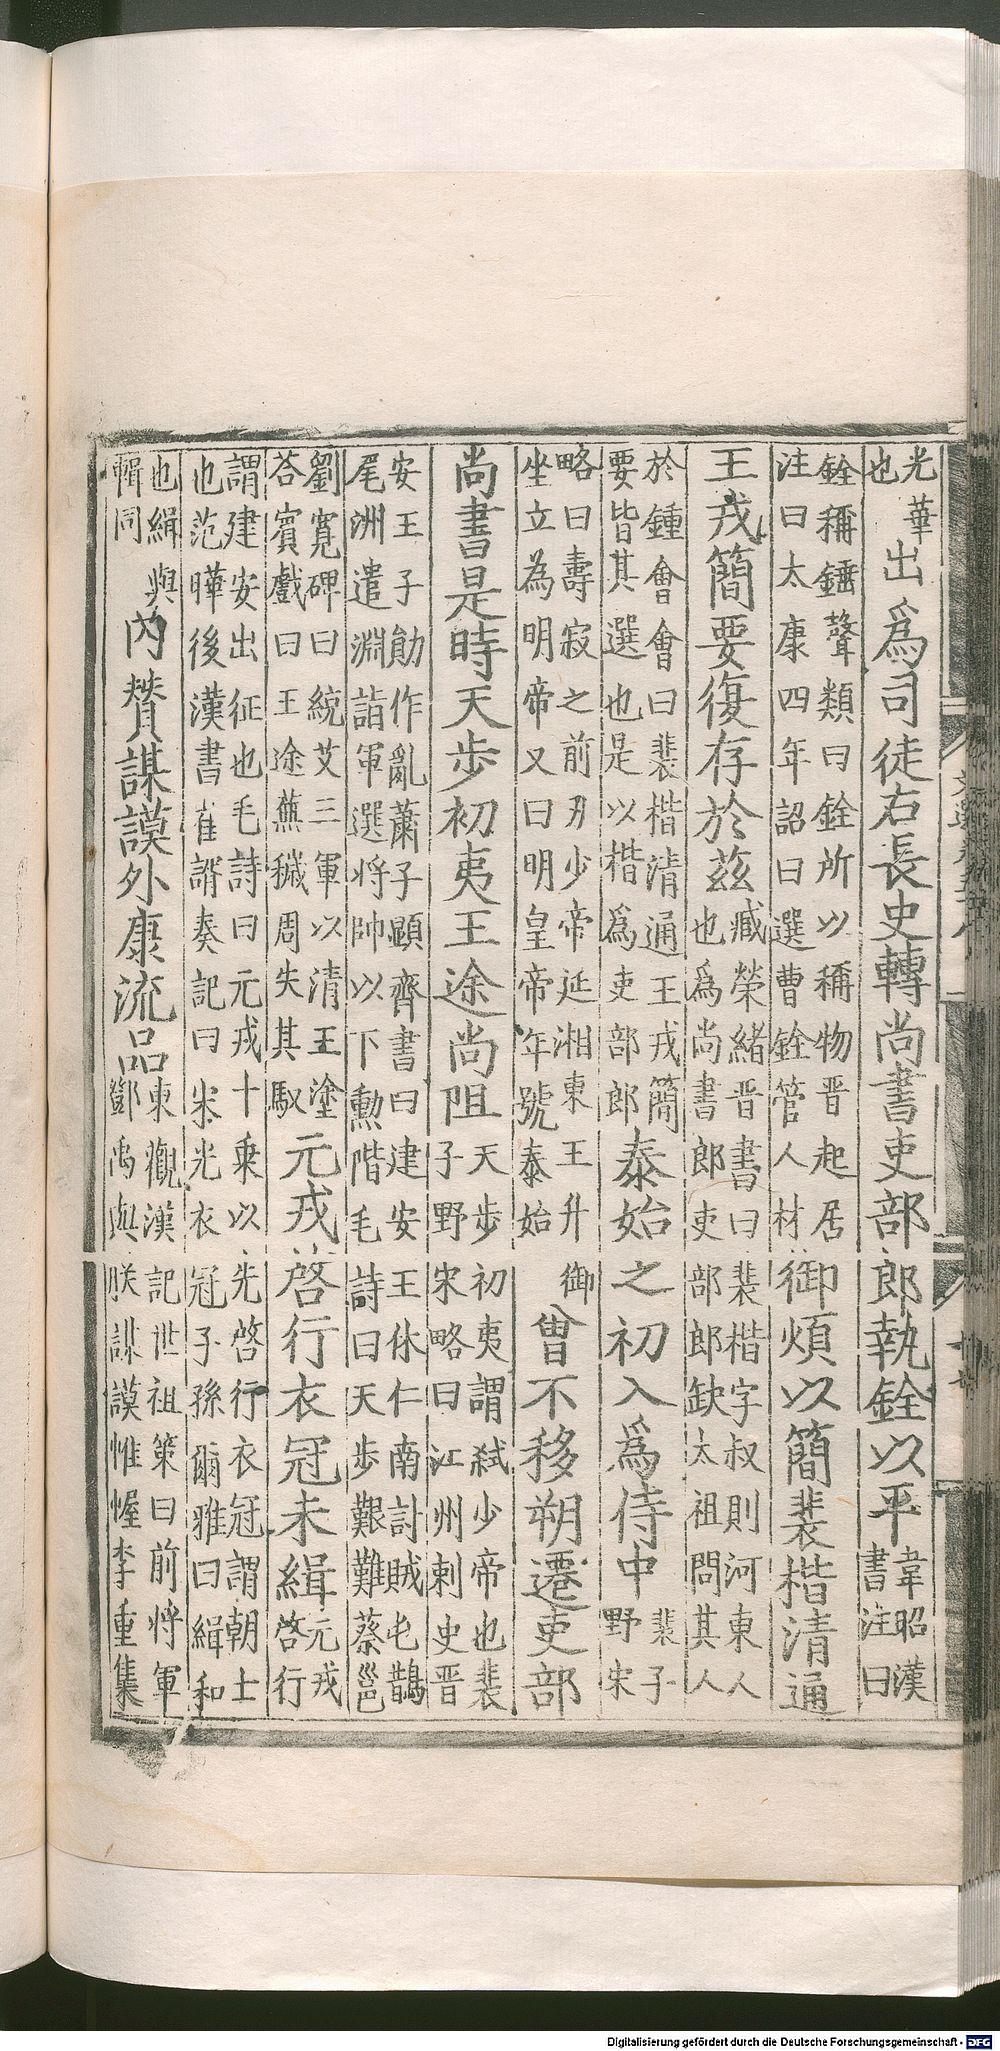 光華也出爲司徒右長史轉尚書吏部郎執銓以平韋昭漢書注曰
銓稱錘聲類曰銓所以稱物晋起居注曰太康四年詔曰選曹銓管人材御煩以簡裴楷清通
王戎簡要復存於茲臧榮緒晋書曰裴楷字叔則河東人也爲尚書郎吏部郎缺太祖問其人
於鍾會會曰裴楷清通王戎簡要皆其選也是以楷爲吏部郎泰始之初入爲侍中裴子野宋
略曰壽寂之前刃少帝延湘東王升御坐立為明帝又曰明皇帝年號泰始曾不移朔遷吏部
尚書是時天步初夷王途尚阻天步初夷謂弑少帝也裴子野宋略曰江州刺史晋
安王子勛作亂蕭子顯齊書曰建安王休仁南討賊屯鵲尾洲遣淵詣軍選将帥以下勲階毛詩曰天步艱難蔡邕
劉寬碑曰統艾三軍以清王塗荅賓戲曰王途蕪穢周失其馭元戎啓行衣冠未緝元戎啓行
謂建安出征也毛詩曰元戎十乗以先啓行衣冠謂朝士也范曄後漢書崔諝奏記曰宋光衣冠子孫爾雅曰緝和
也緝與輯同內賛謀謨外康流品東觀漢記世祖策曰前将軍鄧禹與朕謀謨帷幄李重集
Digitalisierung gefördert durch die Deutsche Forschungsgemeinschaft - DFG